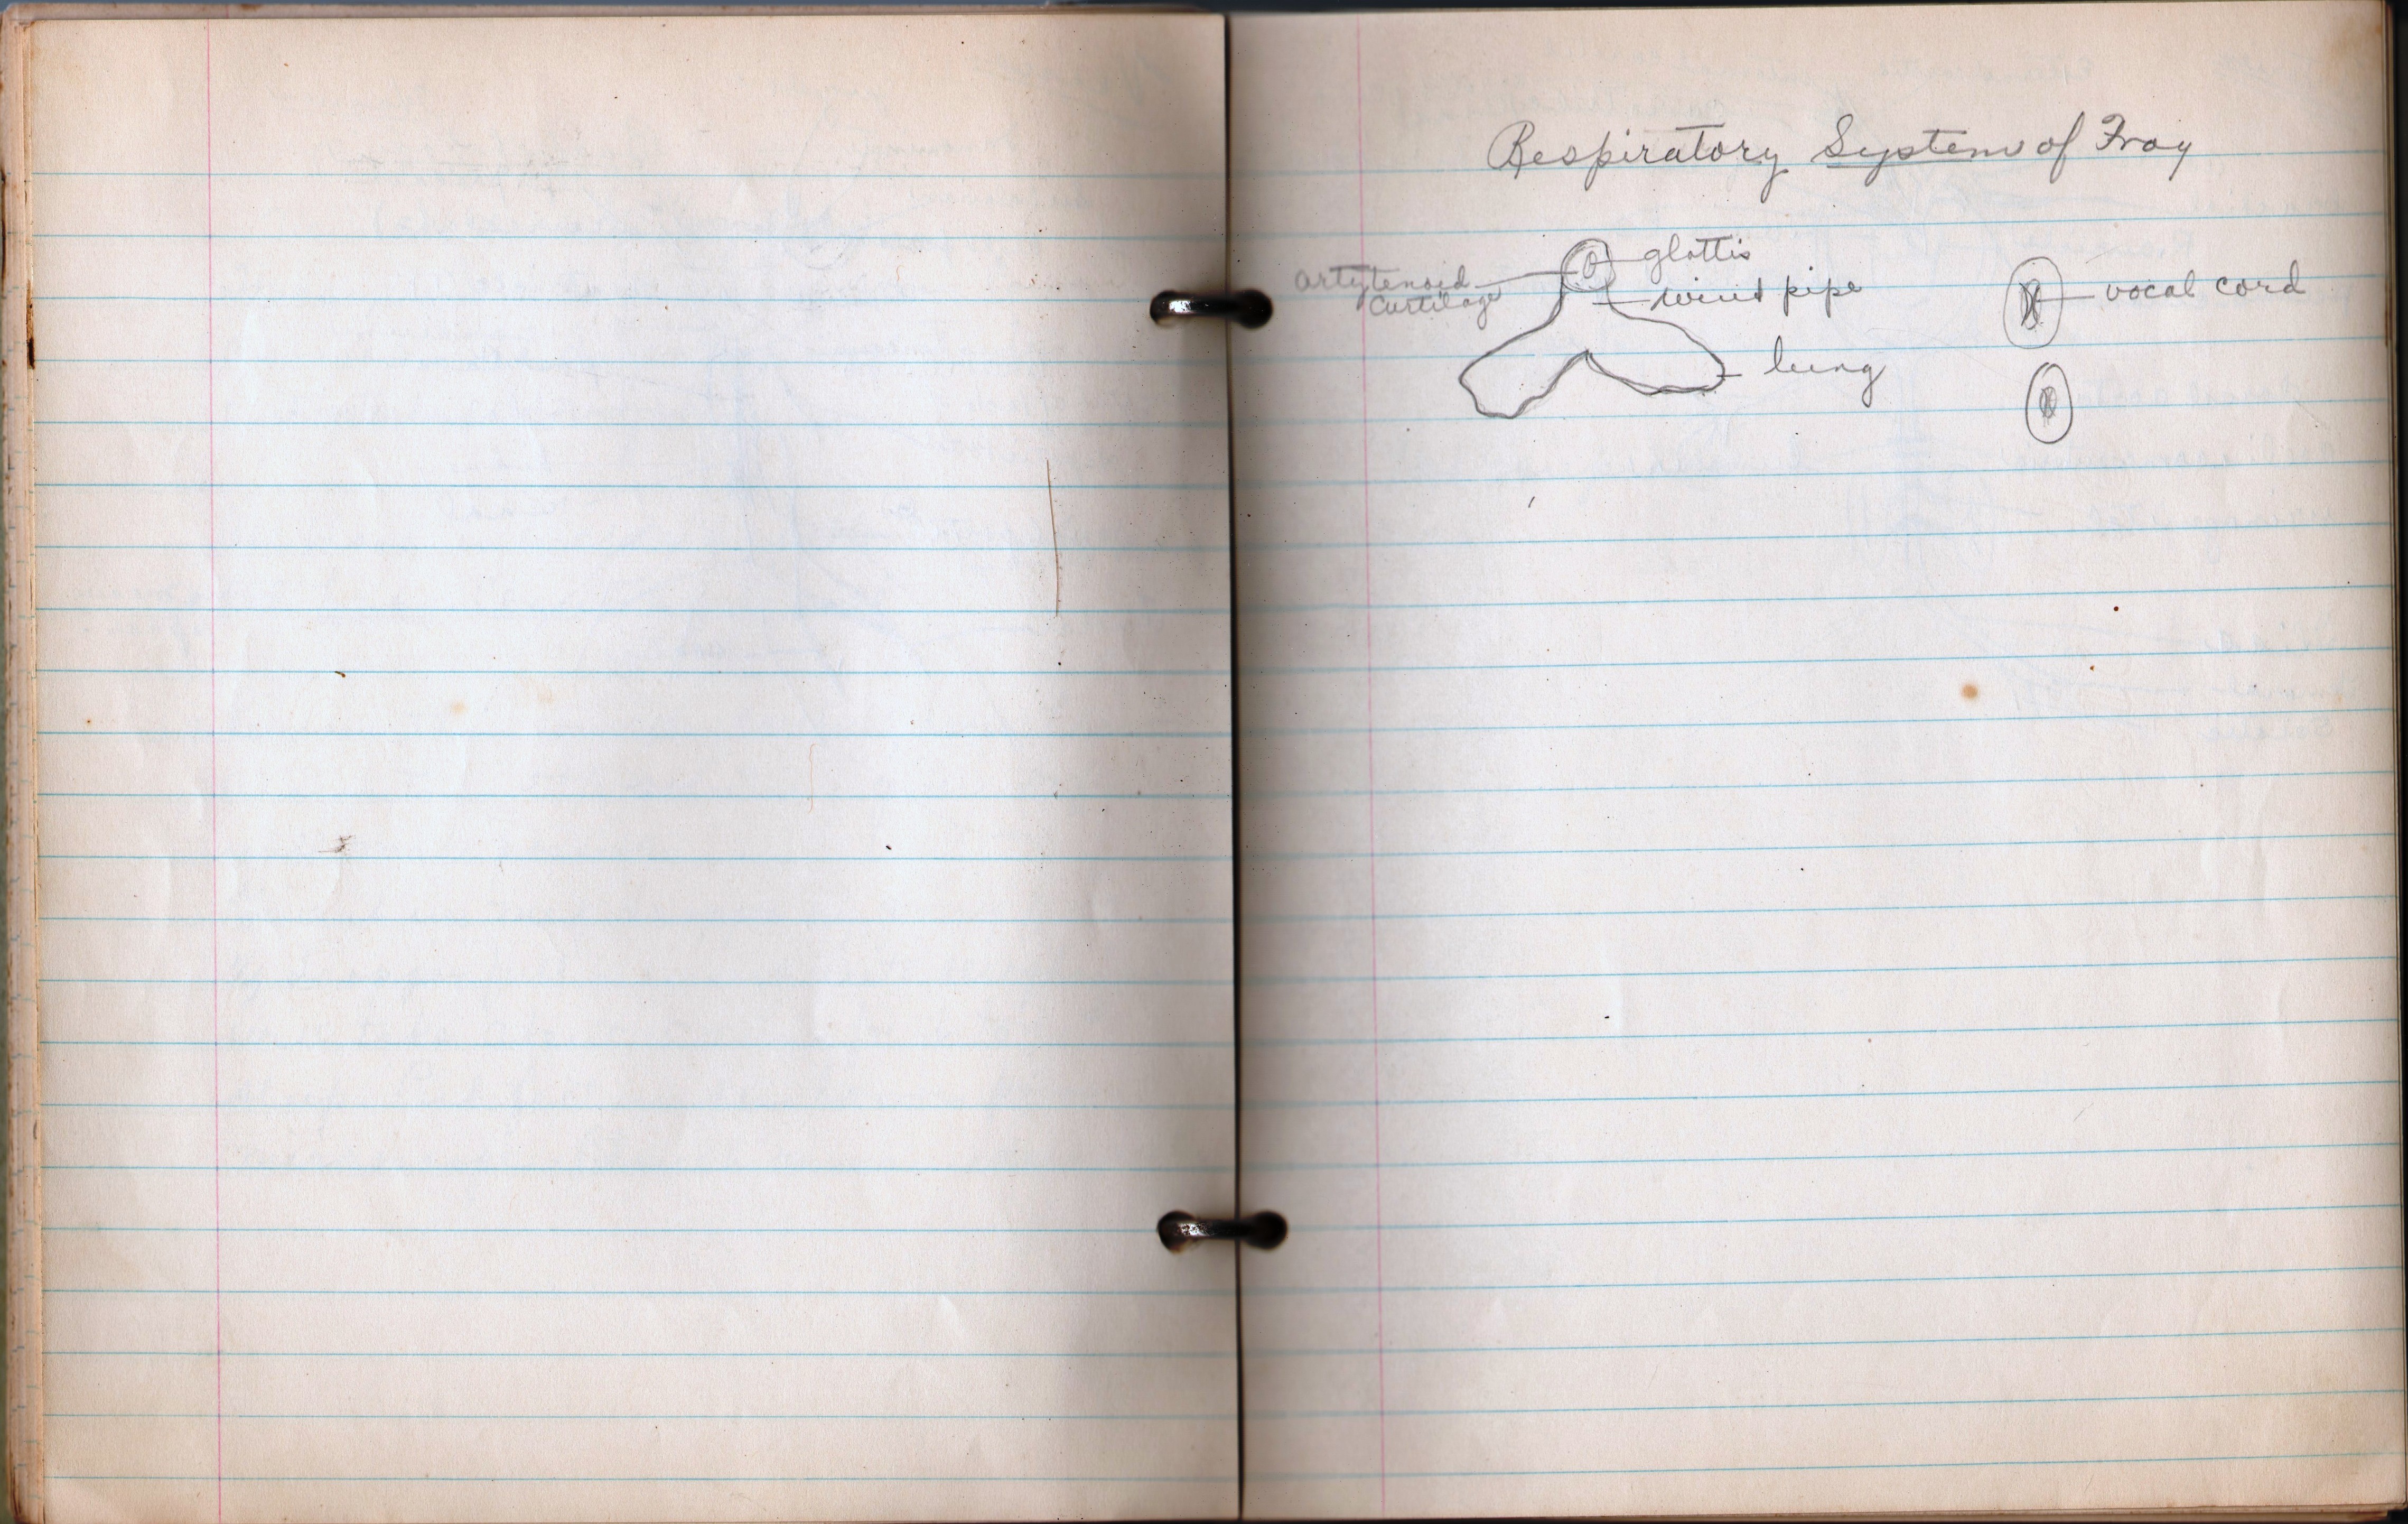 Respiratory System of Frog
glottis
artytenoid
Cartilage
wind pipe
vocal cord
lung